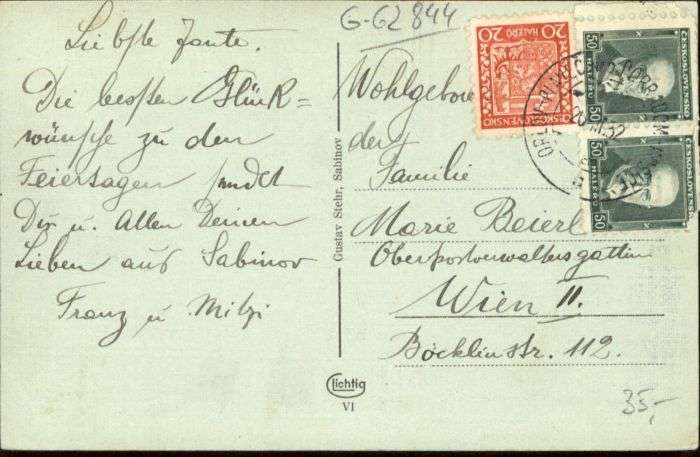 G-G2 844
Liebste Tante.
Die besten Glück=
wünsche zu den
Feiertagen sendet
Dir u. Allen Deinen
Lieben aus Sabinov
Franz u. Mitzi
Gustav Stehr, Sabinov
Lichtig
VI
20
20
HALÉŘŮ
ČESKOSLOVENSKO
50
50
HALÉŘŮ
ČESKOSLOVENSKO
50
50
HALÉŘŮ
ČESKOSLOVENSKO
Wohlgeboren
der
Familie
Marie Beierl
Oberpostverwaltersgattin
Wien II.
Böcklinstr. 112.
35,-